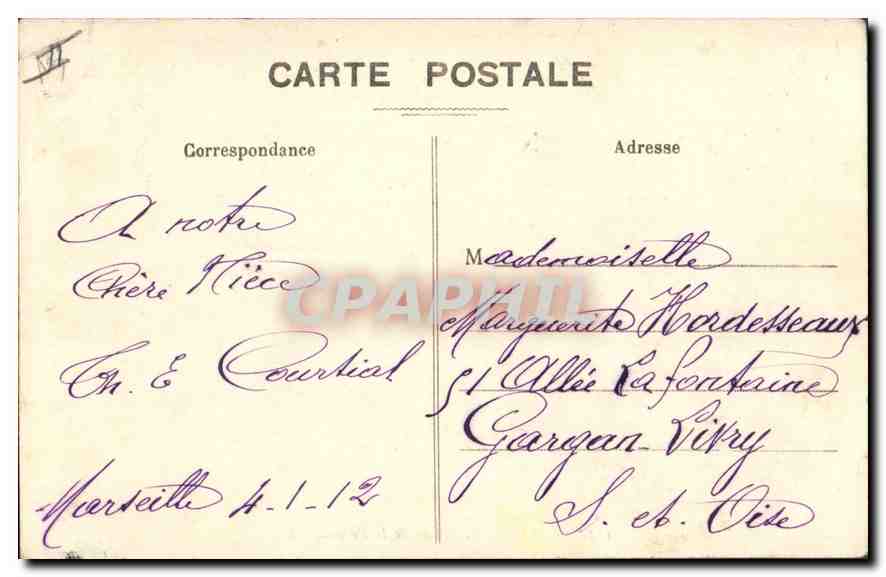 VI
CARTE POSTALE
Correspondance
A notre
Chère Nièce
Th. E Courtial
Marseille 4-1-12
Adresse
Mademoiselle
Marguerite Hordesseaux
51 Allée Lafontaine
Gargan-Livry
S. et. Oise
CPAPHIL